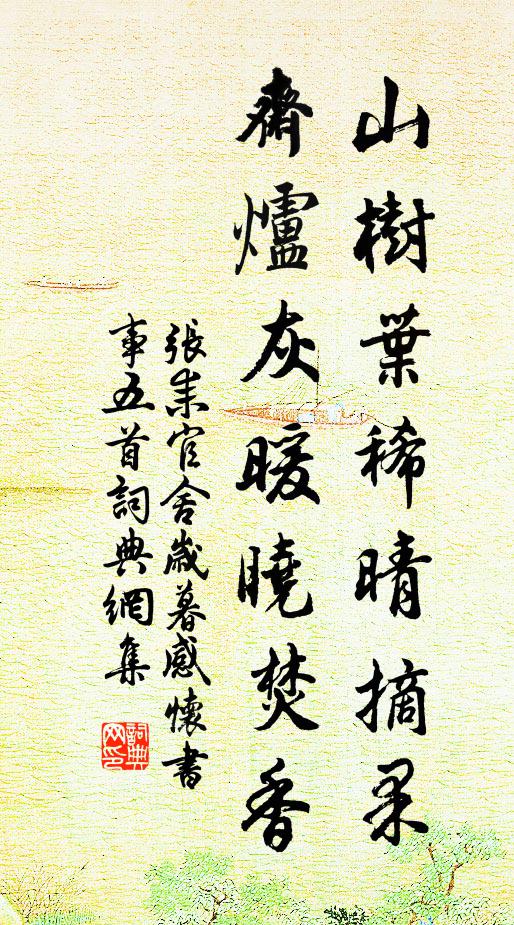 山樹葉稀晴摘果
齋爐灰暖曉焚香
張耒官舍歲暮感懷書
事五首詞典網集
詞典
网印